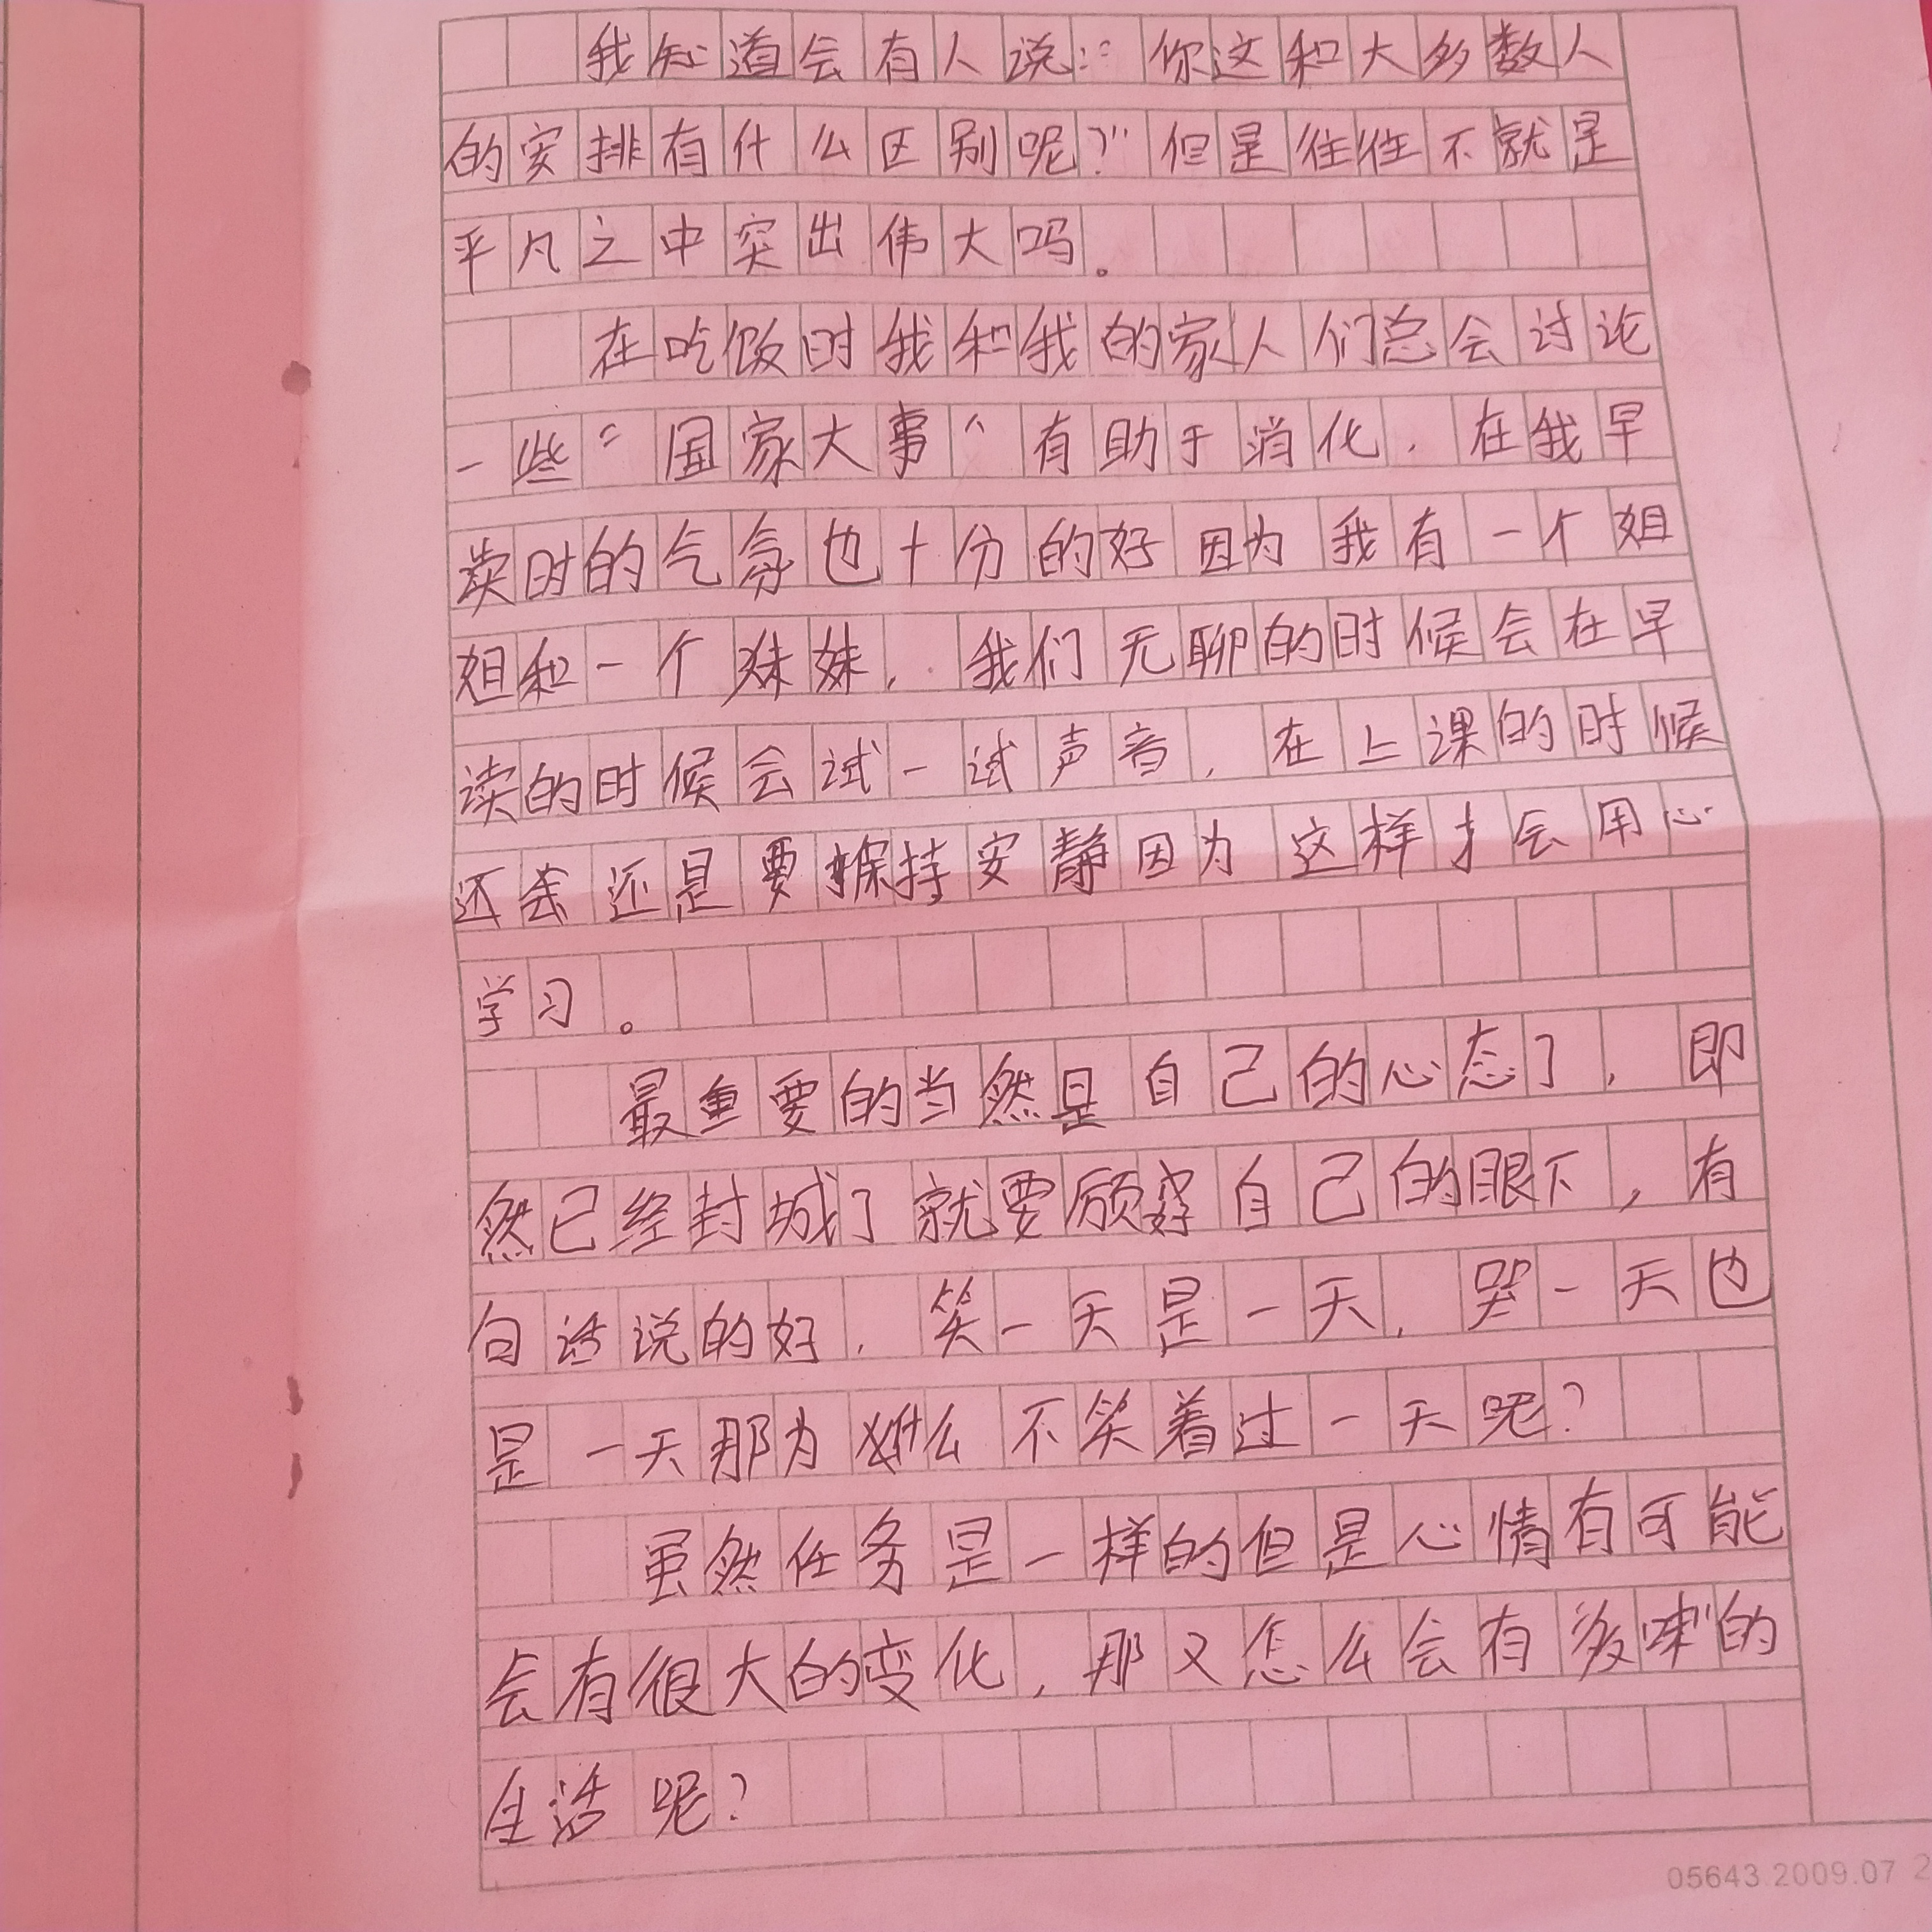 我知道会有人说："你这和大多数人
的安排有什么区别呢？"但是往往不就是
平凡之中突出伟大吗。
在吃饭时我和我的家人们总会讨论
一些"国家大事"有助于消化，在我早
读时的气氛也十分的好因为我有一个姐
姐和一个妹妹，我们无聊的时候会在早
读的时候会试一试声音，在上课的时候
还会还是要保持安静因为这样才会用心
学习。
最重要的当然是自己的心态了，即
然已经封城了就要顾好自己的眼下，有
句话说的好，笑一天是一天，哭一天也
是一天那为什么不笑着过一天呢？
虽然任务是一样的但是心情有可能
会有很大的变化，那又怎么会有乏味的
生活呢？
05643 2009.07 2